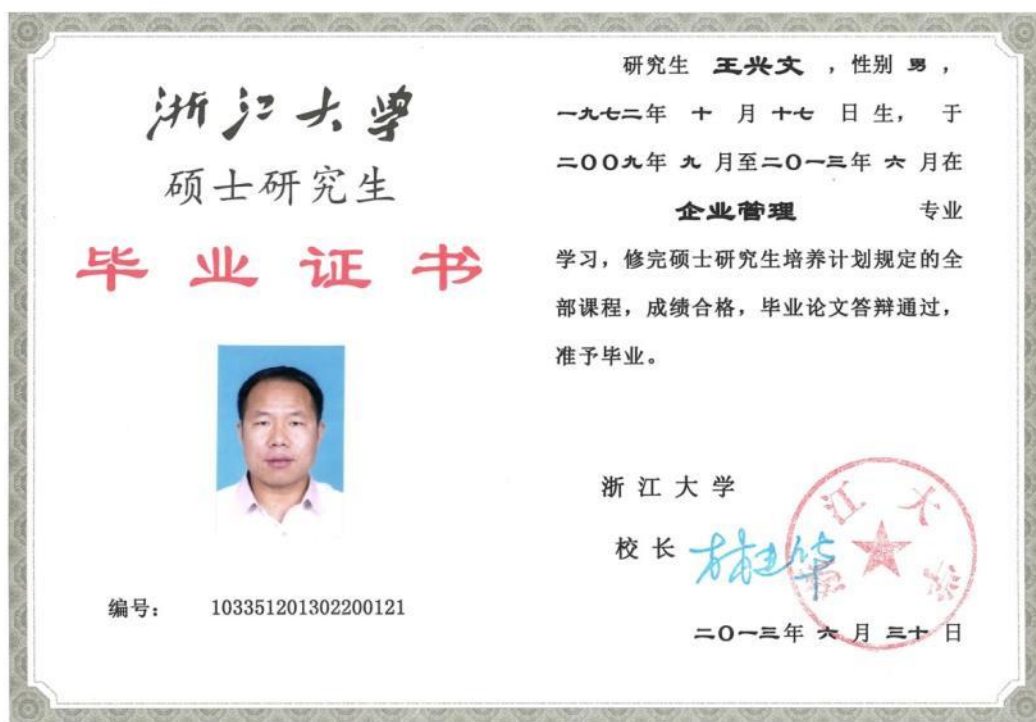 浙江大学
硕士研究生
毕业证书
编号： 103351201302200121
研究生 王兴文 ，性别 男 ，
一九七二年 十 月 十七 日 生， 于
二〇〇九年 九 月至二〇一三年 六 月在
企业管理 专业
学习，修完硕士研究生培养计划规定的全
部课程，成绩合格，毕业论文答辩通过，
准予毕业。
浙 江 大 学
校 长 林建华
二〇一三年 六 月 三十 日
浙江大学